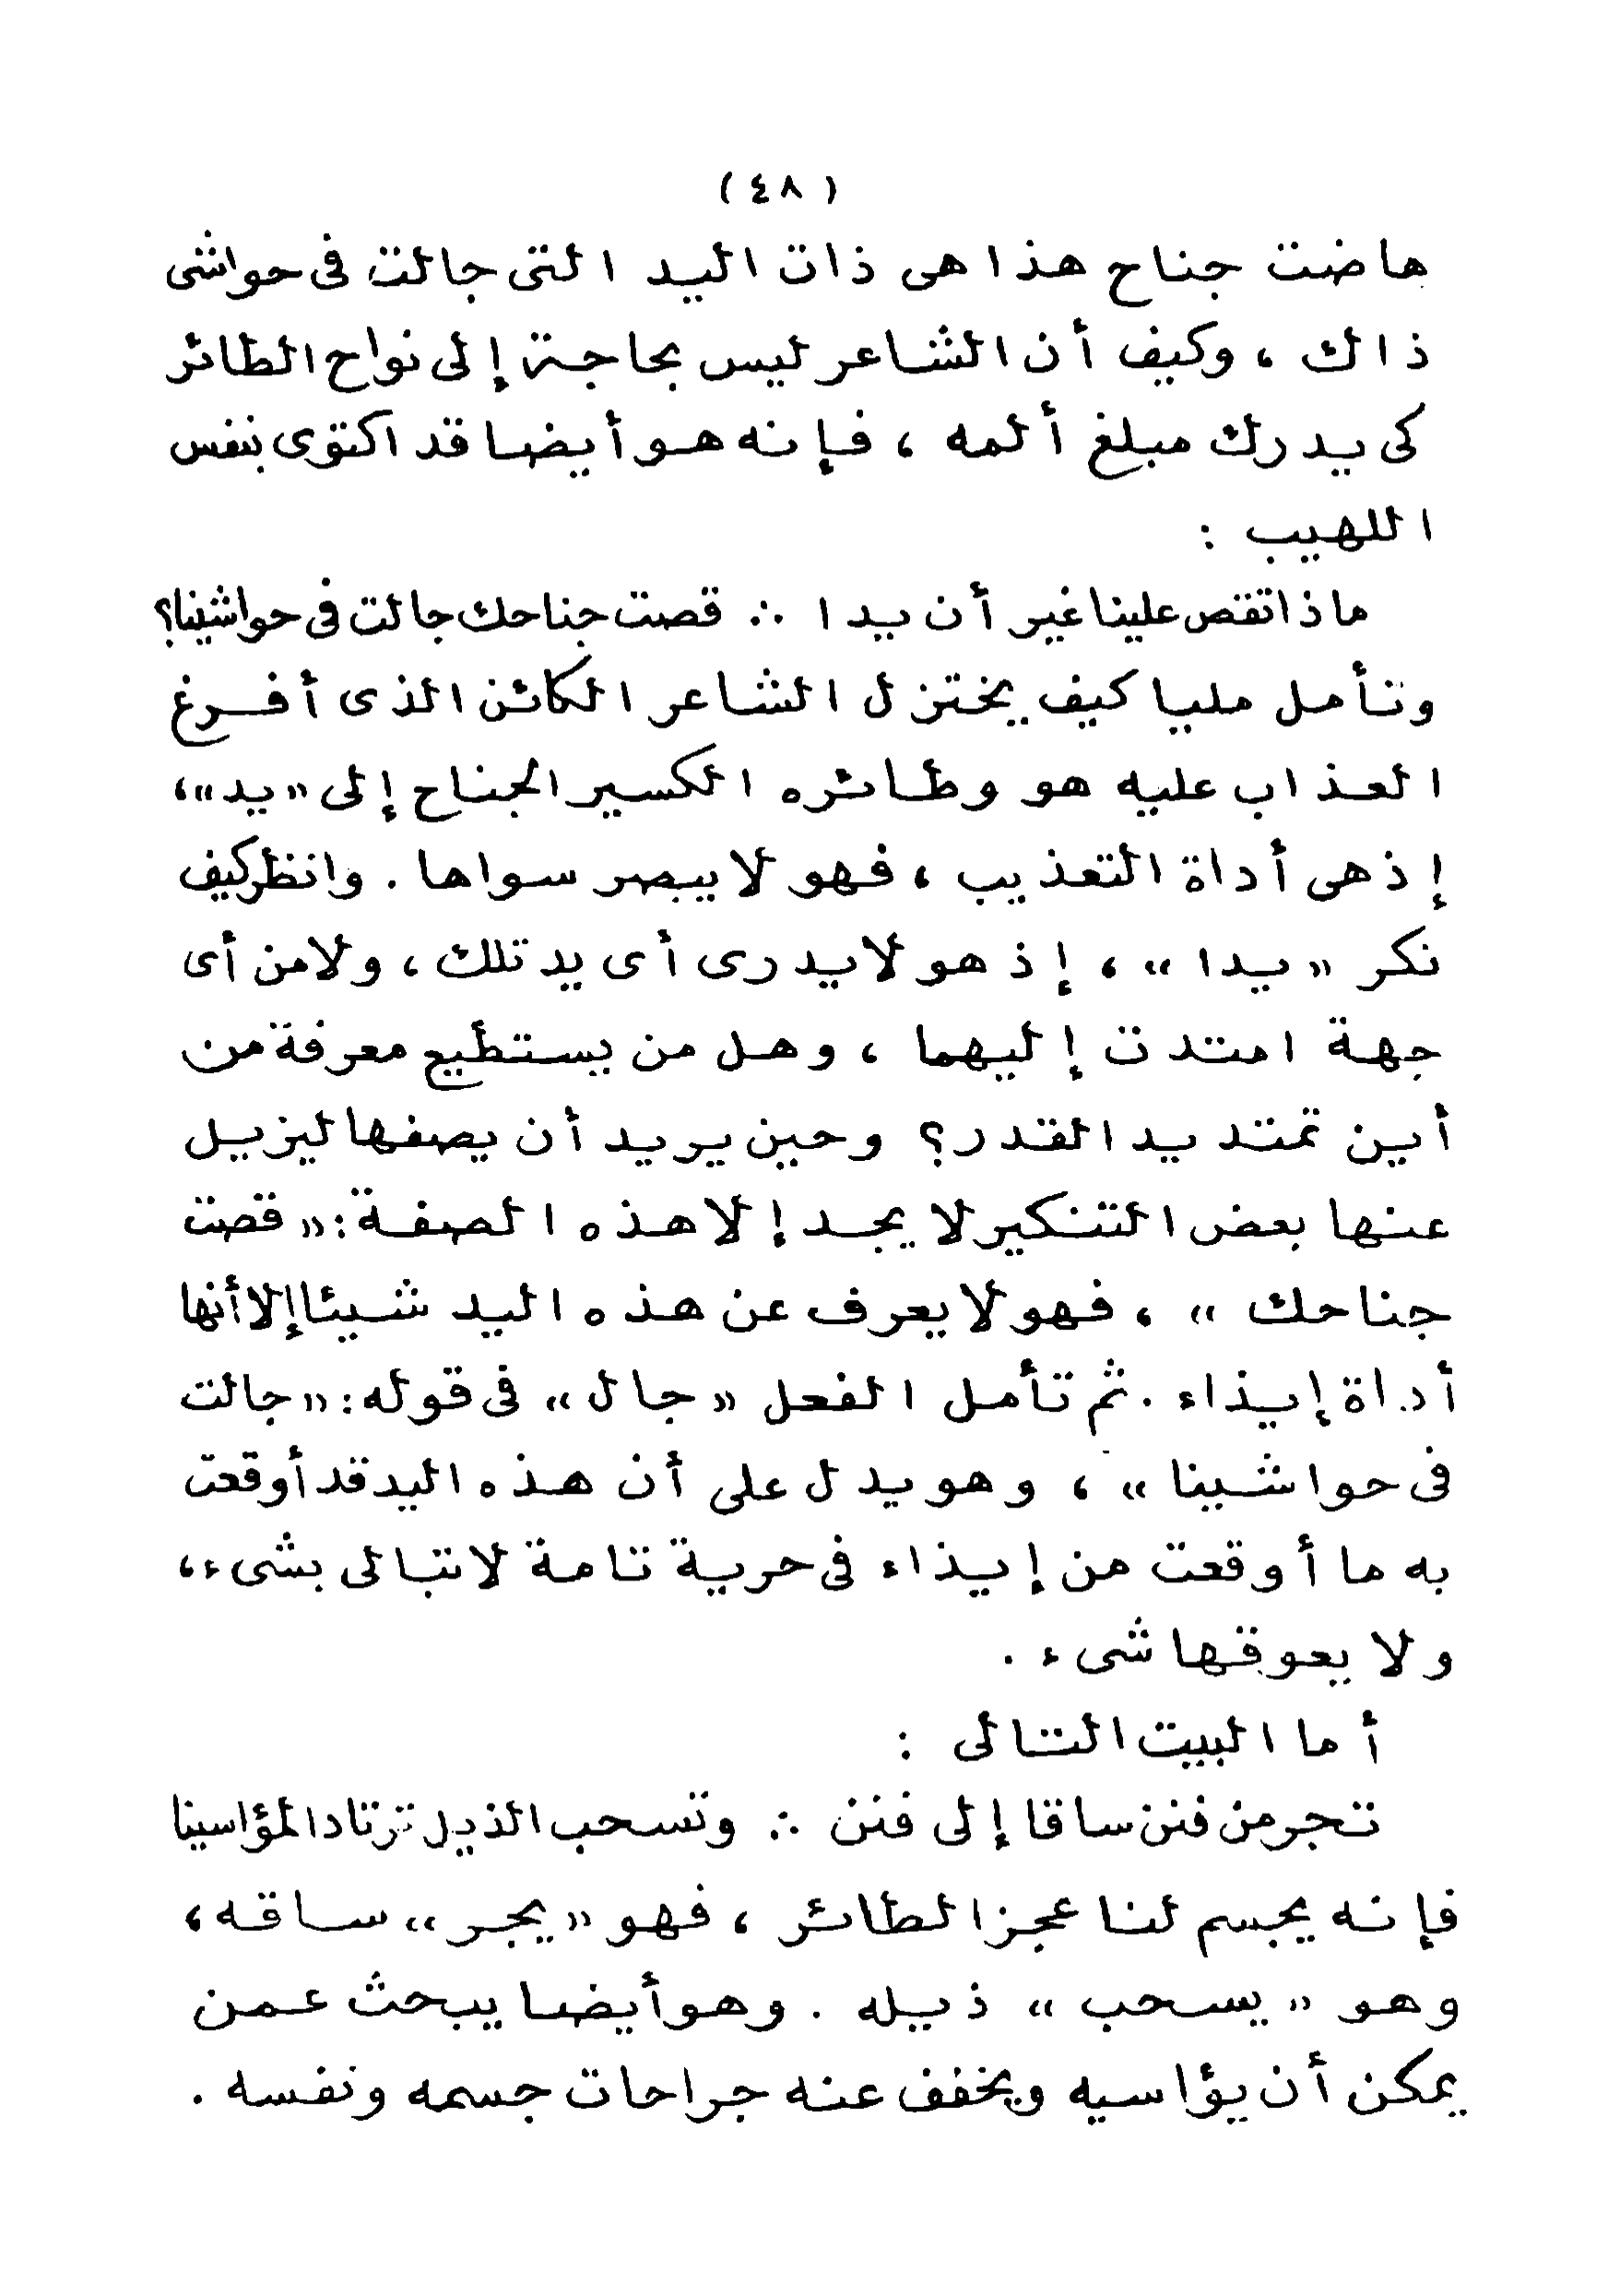 ( ٤٨ )
هاضت جناح هذا هى ذات اليد التى جالت فى حواشى
ذاك ، وكيف أن الشاعر ليس بحاجة إلى نواح الطائر
كى يدرك مبلغ ألمه ، فإنه هو أيضا قد اكتوى بنفس
اللهيب :
ماذا تقص علينا غير أن يدا ∴ قصت جناحك جالت فى حواشينا؟
وتأمل مليا كيف يختزل الشاعر الكائن الذى أفرغ
العذاب عليه هو وطائره الكسير الجناح إلى «يد»،
إذ هى أداة التعذيب ، فهو لا يبصر سواها . وانظر كيف
نكر «يدا» ، إذ هو لا يدرى أى يد تلك ، ولا من أى
جهة امتدت إليهما ، وهل من يستطيع معرفة من
أين تمتد يد القدر؟ وحين يريد أن يصفها ليزيل
عنها بعض التنكير لا يجد إلا هذه الصفة: «قصت
جناحك» ، فهو لا يعرف عن هذه اليد شيئا إلا أنها
أداة إيذاء . ثم تأمل الفعل «جال» فى قوله: «جالت
فى حواشينا» ، وهو يدل على أن هذه اليد قد أوقعت
به ما أوقعت من إيذاء فى حرية تامة لا تبالى بشىء،
ولا يعوقها شىء .
أما البيت التالى :
تجر من فنن ساقا إلى فنن ∴ وتسحب الذيل ترتاد المؤاسينا
فإنه يجسم لنا عجز الطائر ، فهو «يجر» ساقه،
وهو «يسحب» ذيله . وهو أيضا يبحث عمن
يمكن أن يؤاسيه ويخفف عنه جراحات جسمه ونفسه .